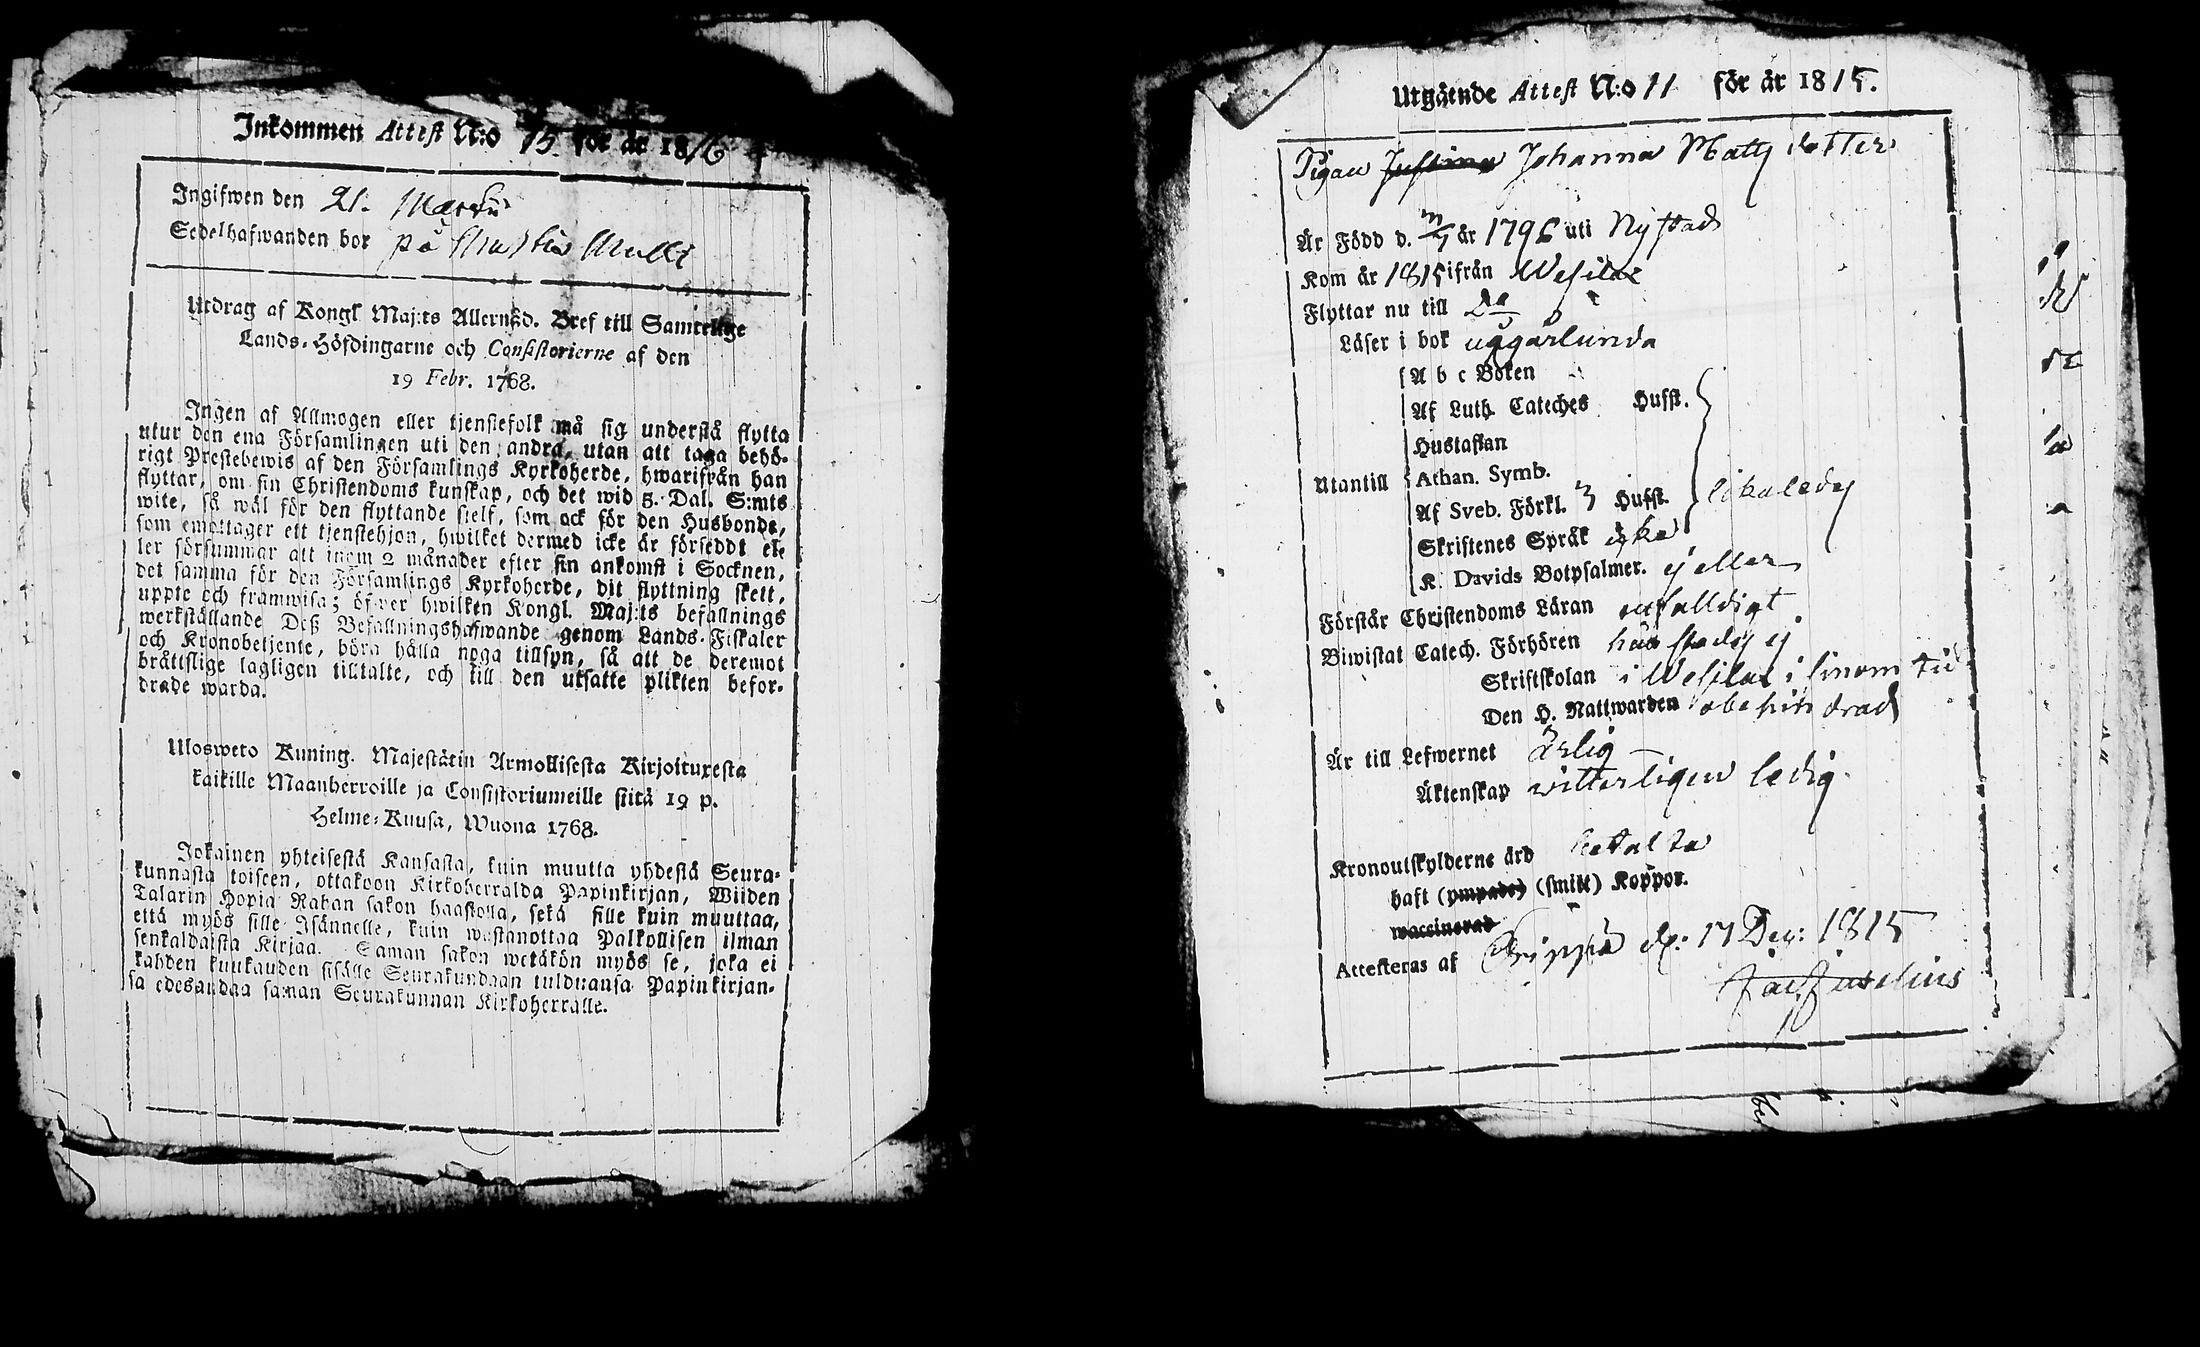 Inkommen Attest N:o 15. för år 1816
Ingifwen den 21. Martii
Sedelhafwanden bor på
Utdrag af Kongl Maj:ts Allernåd. Bref till Samtelige
Lands-Höfdingarne och Consistorierne af den
19 Febr. 1768.
Ingen af Allmogen eller tjenstefolk må sig understå flytta
utur den ena Församlingen uti den andra, utan att taga behö-
rigt Prestebewis af den Församlings Kyrkoherde, hwarifrån han
flyttar, om sin Christendoms kunskap, och det wid 5. Dal. S:mts
wite, så wäl för den flyttande sielf, som ock för den Husbonde,
som emottager ett tjenstehjon, hwilket dermed icke är försedt el-
ler försummar att inom 2 månader efter sin ankomst i Socknen,
det samma för den Församlings Kyrkoherde, dit flyttning skett,
uppte och framwisa; öfwer hwilken Kongl. Maj:ts befallnings
werkställande Deß Befallningshafwande genom Lands-Fiskaler
och Kronobetjente, böra hålla noga tillsyn, så att de deremot
bråttslige lagligen tilltalte, och till den utsatte plikten befor-
drade warda.
Ulosweto Kuning. Majestätin Armollisesta Kirjoituxesta
kaikille Maanherroille ja Consistoriumeille siitä 19 p.
Helme-Kuusa, Wuona 1768.
Jokainen yhteisestä Kansasta, kuin muutta yhdestä Seura-
kunnasta toiseen, ottakoon Kirkoherralda Papinkirjan, Wiiden
Talarin Hopia Rahan sakon haastolla, sekä sille kuin muuttaa,
että myös sille Isännelle, kuin wastanottaa Palkollisen ilman
senkaldaista Kirjaa. Saman sakon wetäkön myös se, joka ei
kahden kuukauden sisälle Seurakundaan tulduansa Papinkirjan-
sa edesandaa saman Seurakunnan Kirkoherralle.
Utgående Attest N:o 11 för år 1815.
Pigan Justina Johanna Matts dotter
Är Född d. år 1796 uti Nystad
Kom år 1815 ifrån Wesilax
Flyttar nu till Do
Läser i bok någorlunda
A b c Boken
Af Luth. Cateches Hufst.
Hustaflan
Utantill Athan. Symb.
Af Sveb. Förkl. 3 Hufst. likaledes
Skriftenes Språk icke
K. Davids Botpsalmer. ej eller
Förstår Christendoms Läran enfalldigt
Biwistat Catech. Förhören härstädes ej
Skriftskolan i Wesilax i sinom tid
Den H. Nattwarden obehindrad
Är till Lefwernet ärlig
Äktenskap witterligen ledig
Kronoutskylderne ärd betalta
haft (ympade) (smitt) Koppor.
waccinerad
Attesteras af d. 17 Dec: 1815